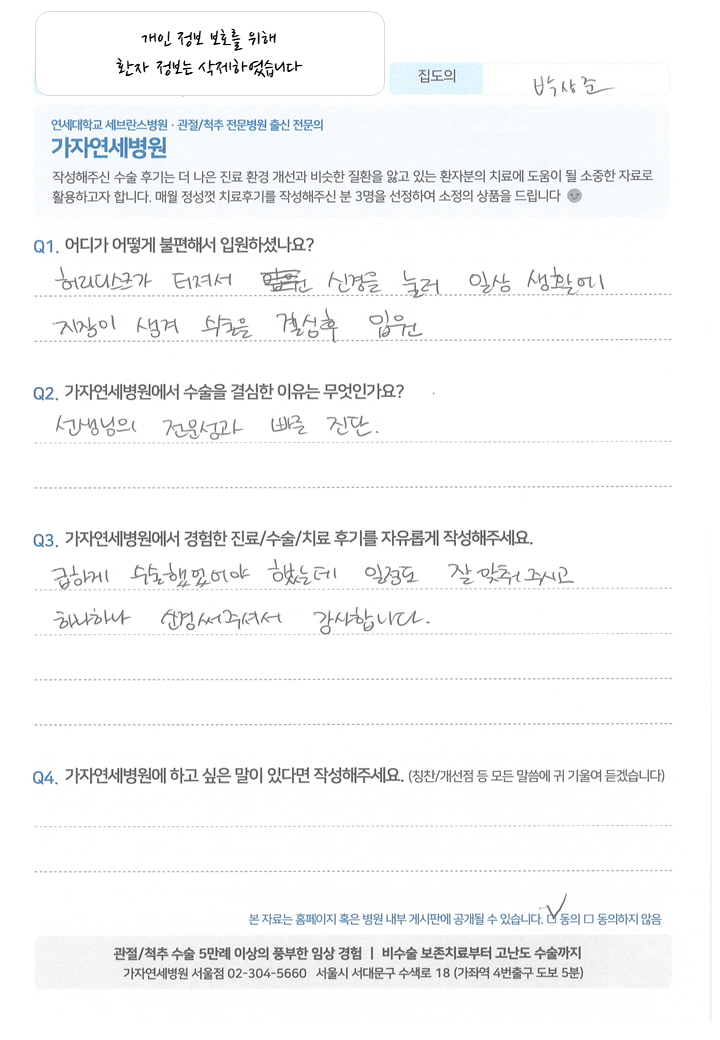 개인 정보 보호를 위해
환자 정보는 삭제하였습니다
집도의 박상준
연세대학교 세브란스병원 · 관절/척추 전문병원 출신 전문의
가자연세병원
작성해주신 수술 후기는 더 나은 진료 환경 개선과 비슷한 질환을 앓고 있는 환자분의 치료에 도움이 될 소중한 자료로
활용하고자 합니다. 매월 정성껏 치료후기를 작성해주신 분 3명을 선정하여 소정의 상품을 드립니다
Q1. 어디가 어떻게 불편해서 입원하셨나요?
허리디스크가 터져서 신경을 눌러 일상 생활에
지장이 생겨 수술을 결심후 입원
Q2. 가자연세병원에서 수술을 결심한 이유는 무엇인가요?
선생님의 전문성과 빠른 진단.
Q3. 가자연세병원에서 경험한 진료/수술/치료 후기를 자유롭게 작성해주세요.
급하게 수술했었어야 했는데 일정도 잘 맞춰 주시고
하나하나 신경써주셔서 감사합니다.
Q4. 가자연세병원에 하고 싶은 말이 있다면 작성해주세요. (칭찬/개선점 등 모든 말씀에 귀 기울여 듣겠습니다)
본 자료는 홈페이지 혹은 병원 내부 게시판에 공개될 수 있습니다. ☑ 동의 □ 동의하지 않음
관절/척추 수술 5만례 이상의 풍부한 임상 경험 | 비수술 보존치료부터 고난도 수술까지
가자연세병원 서울점 02-304-5660 서울시 서대문구 수색로 18 (가좌역 4번출구 도보 5분)